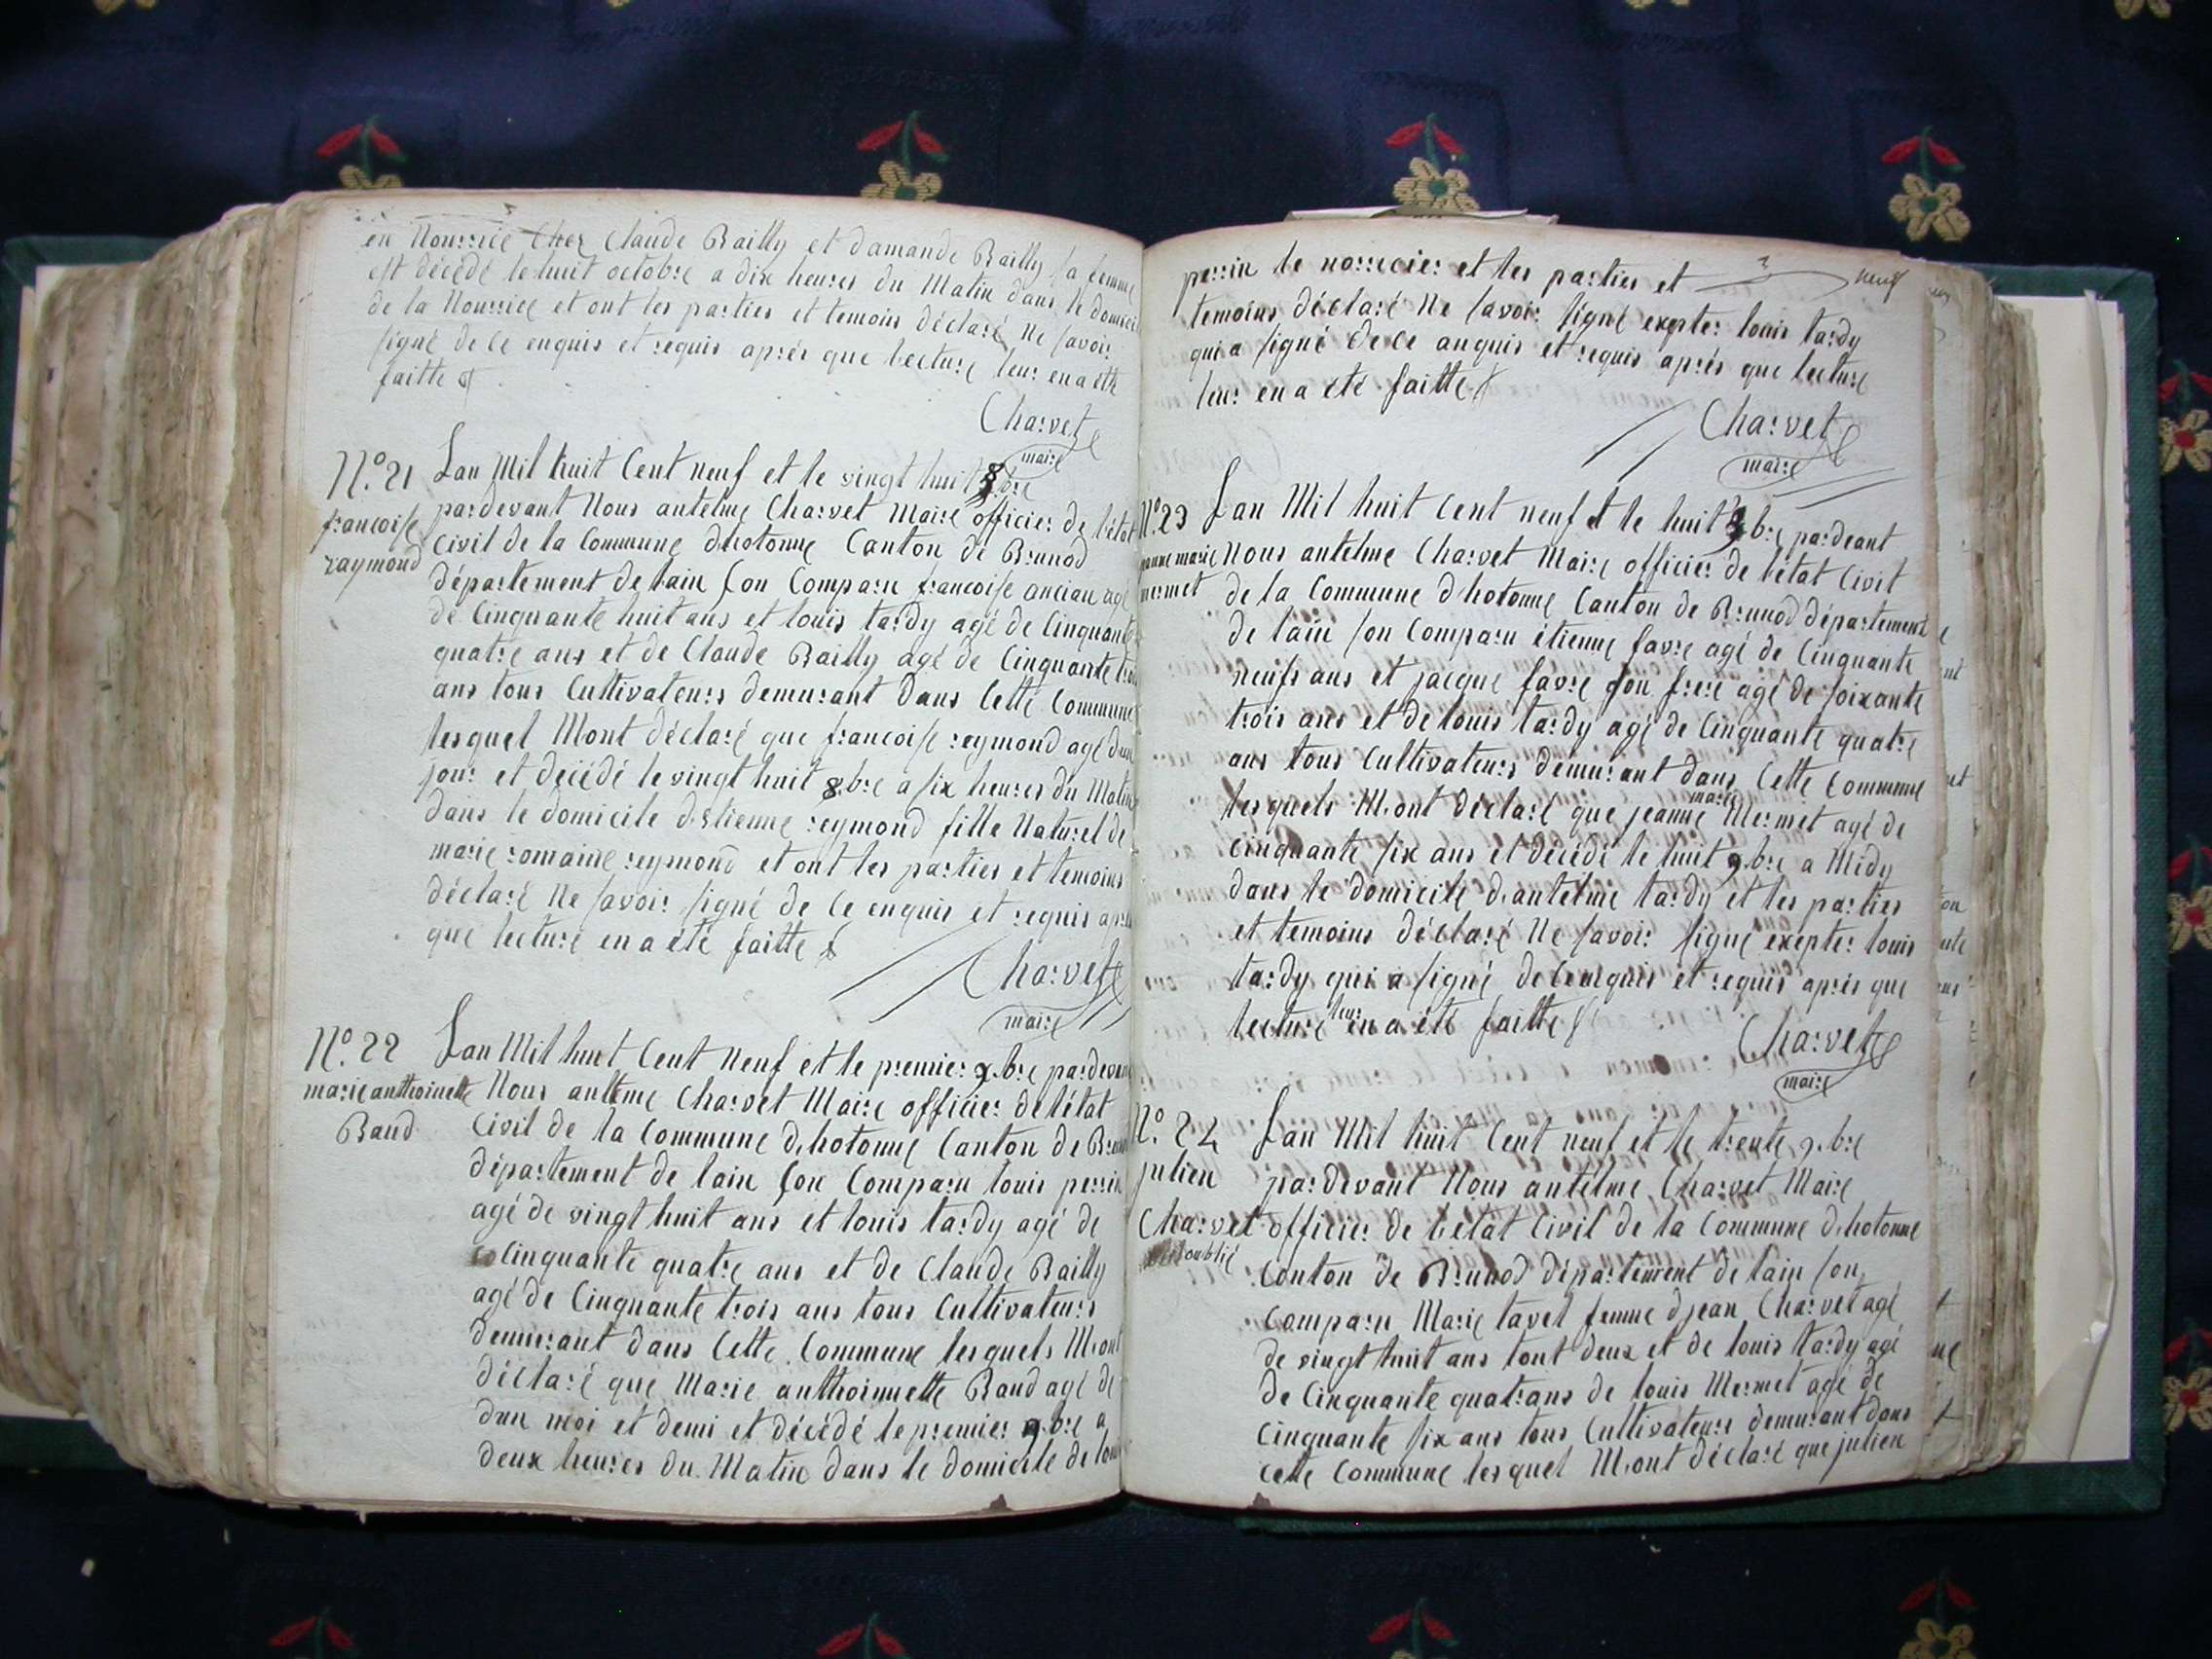 en Nourrice Chez Claude Bailly et damande Bailly sa femme
est décédé le huit octobre a dix heures du Matin dans le domicil
de la Nourrice et ont les parties et temoins déclaré Ne savoir
signé de ce enquis et requis aprés que lecture leur en a été
faitte
Charvet
maire
N.º 21
francoise
raymond
Lan Mil huit Cent neuf et le vingt huit 8.bre
pardevant Nous antelme Charvet Maire officier de létat
Civil de la Commune dhotonne Canton de Brunod
département de lain son Comparu francoise ancian agé
de Cinquante huit ans et louis tardy agé de Cinquante
quatre ans et de Claude Bailly agé de Cinquante trois
ans tous Cultivateurs demurant dans Cette Commune
lesquel Mont déclaré que francoise reymond agé dun
jour et decédé le vingt huit 8.bre a six heures du Matin
dans le domicile d.etienne reymond fille Naturel de
marie romaine reymond et ont les parties et temoins
déclaré Ne savoir signé de Ce enquis et requis apré
que lecture en a été faitte
Charvet
maire
N.º 22
marie anthoinette
Baud
Lan Mil huit Cent Neuf et le premier 9.bre pardevan
Nous anteme Charvet Maire officier de létat
Civil de la Commune d.hotonne Canton de Brun
département de lain son Comparu louis perrin
agé de vingt huit ans et louis tardy agé de
Cinquante quatre ans et de Claude Bailly
agé de Cinquante trois ans tous Cultivateurs
demurant dans Cette Commune lesquels M.ont
déclaré que Marie anthoinuette Baud agé de
dun moi et demi et décédé le premier 9.bre a
deux heures du Matin dans le domicile de loui
neuf
perrin le norrecier et les parties et
temoins déclaré Ne savoir signé expter louis tardy
qui a signé de Ce anquis et requis aprés que lecture
leur en a été faitte
Charvet
maire
N.º 23
jeanne marie
mermet
Lan Mil huit Cent neuf et le huit 9.bre pardeant
Nous antelme Charvet Maire officier de létat Civil
de la Commune d hotonne Canton de Brunod département
de lain son Comparu étienne favre agé de Cinquante
neufs ans et jacque favre son frere agé de soixante
trois ans et de louis tardy agé de Cinquante quatre
ans tous Cultivateurs demurant dans Cette Commune
lesquels M.ont déclaré que jeanne marie Mermet agé de
Cinquante six ans et décédé le huit 9.bre a Midy
dans le domicile d.antelme tardy et les parties
et temoins déclaré Ne savoir signé exepter louis
tardy qui a signé de Ce enquis et requis aprés que
lecture leur en a été faitte
Charvet
maire
N.º 24
julien
Charvet
oublié
Lan Mil huit Cent neuf et le trente 9.bre
pardevant Nous antelme Charvet Maire
officier de létat Civil de la Commune d.hotonne
Conton de Brunod département de lain son
Comparu Marie tavel femme d jean Charvet agé
de vingt huit ans tout deux et de louis tardy agé
de Cinquante quatrans de louis Mermet agé de
Cinquante six ans tous Cultivateurs demurant dans
Cette Commune lesquel M.ont déclaré que julien